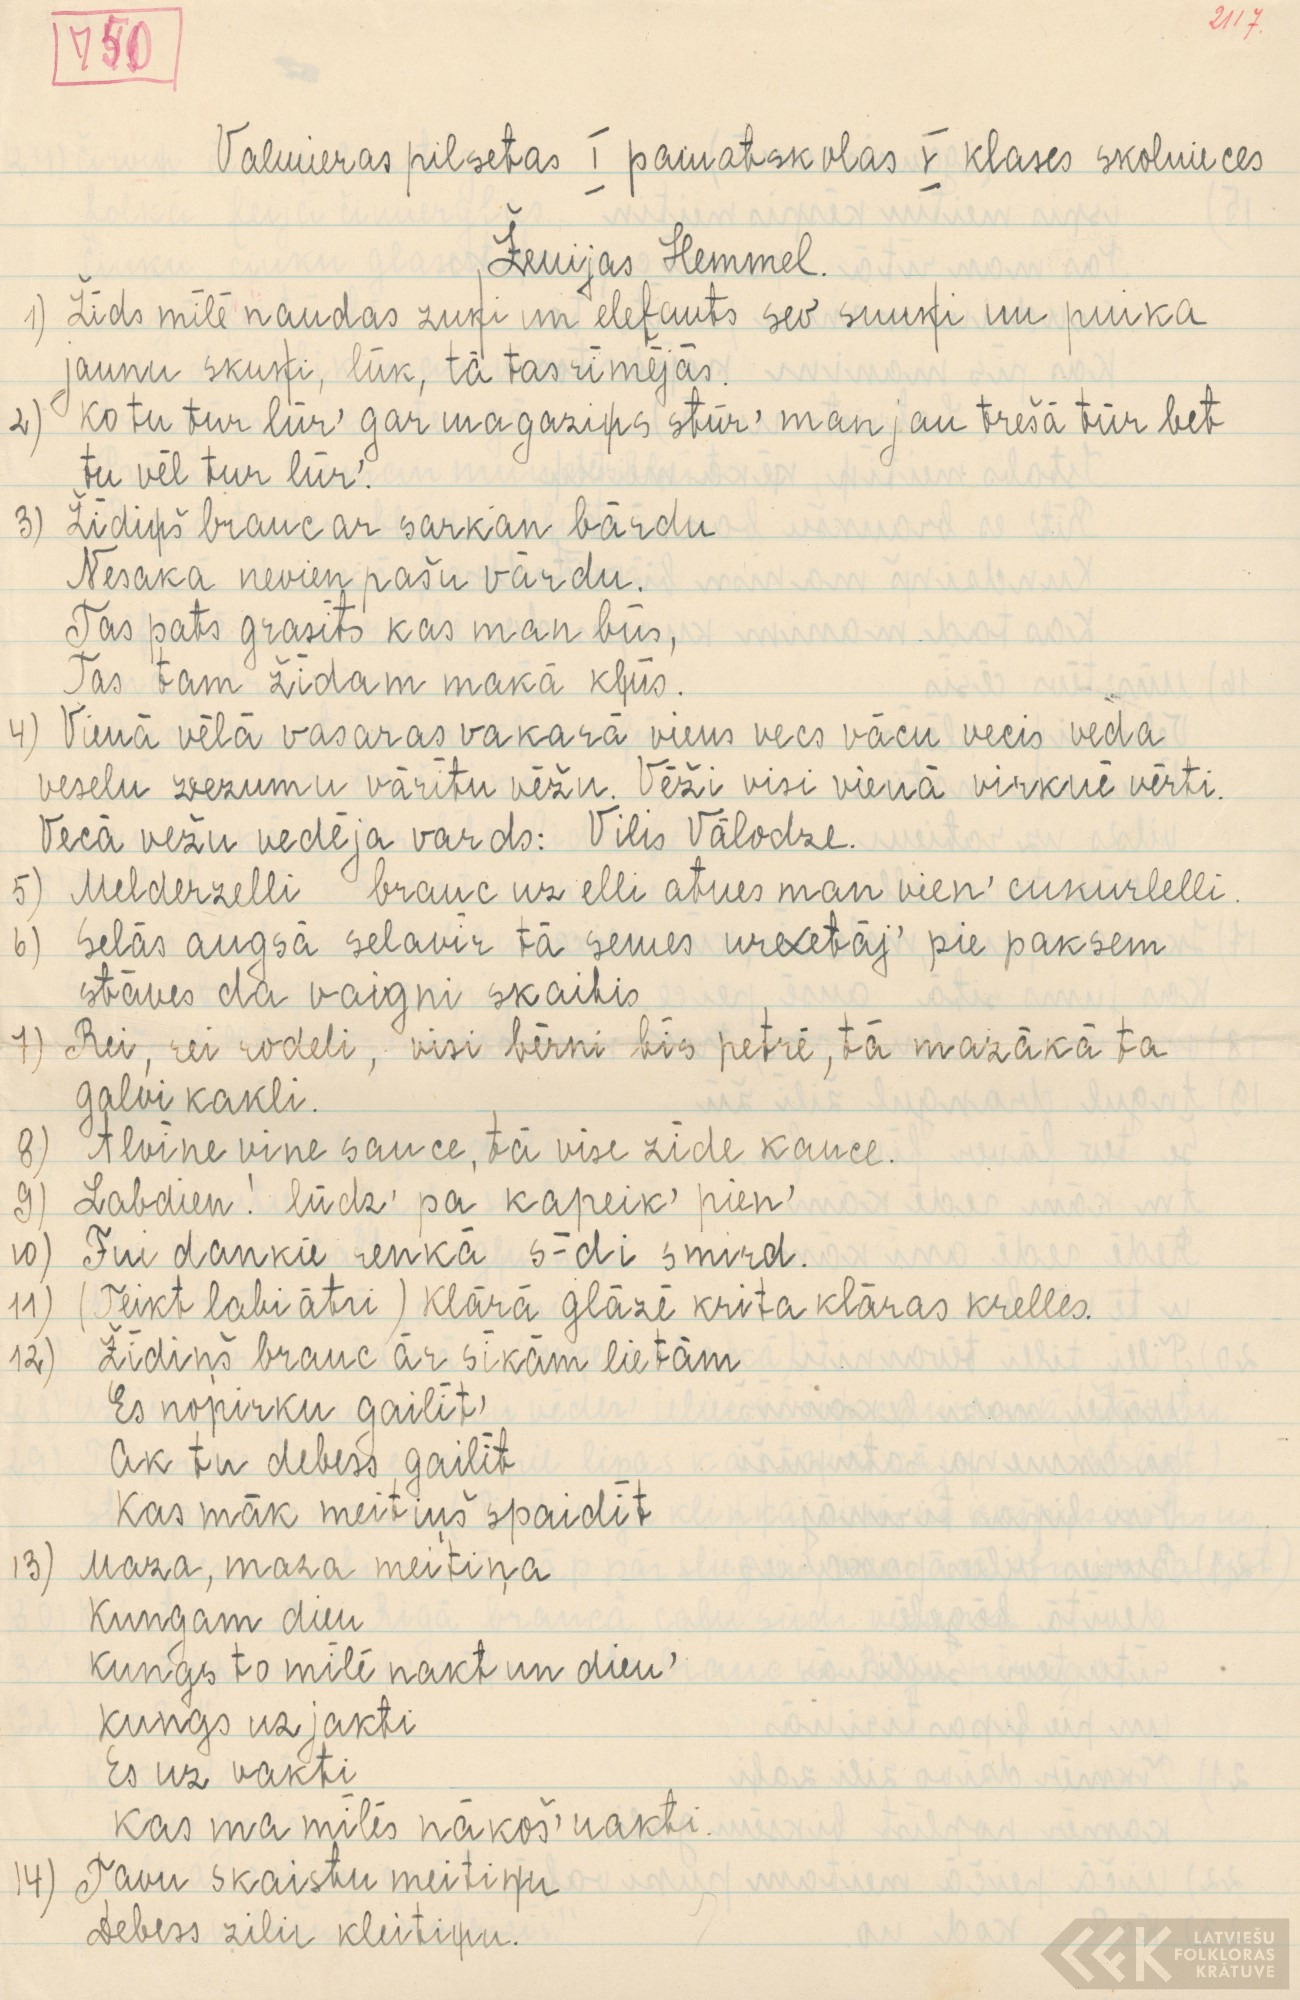 750
2117.
Valmieras pilsetas I pamatskolas V klases skolnieces
Ženijas Hemmel.
1) Žīds mīlē naudas zuķi un elefants sev snuķi un puika
jaunu skuķi, lūk, tā tas rīmējās.
2) Ko tu tur lūr' gar magaziņs stūr' man jau trešā tūr bet
tu vēl tur lūr'.
3) Žīdiņš brauc ar sarkan bārdu
Nesaka nevien pašu vārdu.
Tas pats grasīts kas man būs,
Tas tam žīdam makā kļūs.
4) Vienā vēlā vasaras vakarā viens vecs vācu vecis veda
veselu vezumu vārītu vēžu. Vēži visi vienā virknē vērti.
Vecā vežu vedēja vards: Vilis Vālodze.
5) Melderzelli brauc uz elli atnes man vien' cukurlelli.
6) Selās augsā selavir tā semes urexetāj' pie paksem
stāves da vaigni skaitis
7) Rei, rei rodeli, visi bērni bīs petrē, tā mazākā ta
galvi kakli.
8) Alvīne vine sauce, tā vise zīde kauce.
9) Labdien! lūdz' pa kapeik' pien'
10) Fui dankie renkā sīdi smird.
11) (Teikt labi ātri) Klārā glāzē krita klāras krelles.
12) Žīdiņš brauc ār sīkām lietām
Es nopirku gailīt'
Ak tu debess gailīt
Kas māk meitiņš spaidīt
13) Maza, maza meitiņa
Kungam dien
Kungs to mīlē nakt un dien'
Kungs uz jakti
Es uz vakti
Kas ma mīlēs nākoš' nakti.
14) Tavu skaistu meitiņu
Debess zilu kleitiņu.
LATVIEŠU
FOLKLORAS
KRĀTUVE